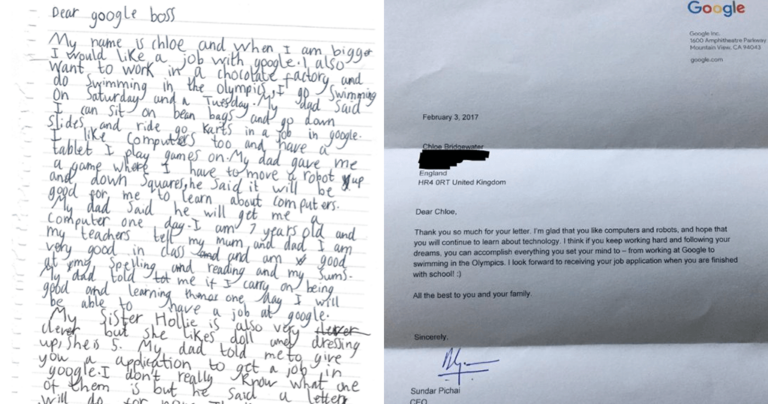 Dear google boss
My name is chloe and when I am bigger
I would like a job with google. I also
want to work in a chocolate factory and
do swimming in the olympics, I go Swimming
on Saturday and a Tuesday. My dad said
I can sit on bean bags and go down
slides and ride go karts in a job in google.
I like computers too and have a
tablet I play games on. My dad gave me
a game where I have to move a robot up
and down squares, he said it will be
good for me to learn about computers.
My dad said he will get me a
computer one day. I am 7 years old and
my teachers tell my mum and dad I am
very good in class and am good
at my spelling and reading and my sums.
My dad told me if I carry on being
good and learning things one day I will
be able to have a job at google.
My sister Hollie is also very
clever but she likes doll and dressing
up, she is 5. My dad told me to give
you a application to get a job in
google. I don't really know what one
of them is but he said a letter
will do for now.
Google
Google Inc.
1600 Amphitheatre Parkway
Mountain View, CA 94043
google.com
February 3, 2017
Chloe Bridgewater
England
HR4 0RT United Kingdom
Dear Chloe,
Thank you so much for your letter. I'm glad that you like computers and robots, and hope that
you will continue to learn about technology. I think if you keep working hard and following your
dreams, you can accomplish everything you set your mind to – from working at Google to
swimming in the Olympics. I look forward to receiving your job application when you are finished
with school! :)
All the best to you and your family.
Sincerely,
Sundar Pichai
CEO